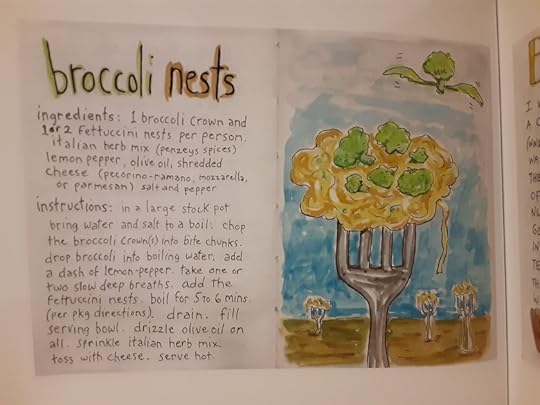 broccoli nests
ingredients: 1 broccoli crown and
1 or 2 fettuccini nests per person.
italian herb mix (penzeys spices)
lemon pepper, olive oil, shredded
cheese (pecorino-romano, mozzarella,
or parmesan) salt and pepper
instructions: in a large stock pot
bring water and salt to a boil. chop
the broccoli crown(s) into bite chunks.
drop broccoli into boiling water. add
a dash of lemon-pepper. take one or
two slow deep breaths. add the
fettuccini nests. boil for 5 to 6 mins.
(per pkg directions). drain. fill
serving bowl. drizzle olive oil on
all. sprinkle italian herb mix.
toss with cheese. serve hot.
I
A C
WA
THE
OF